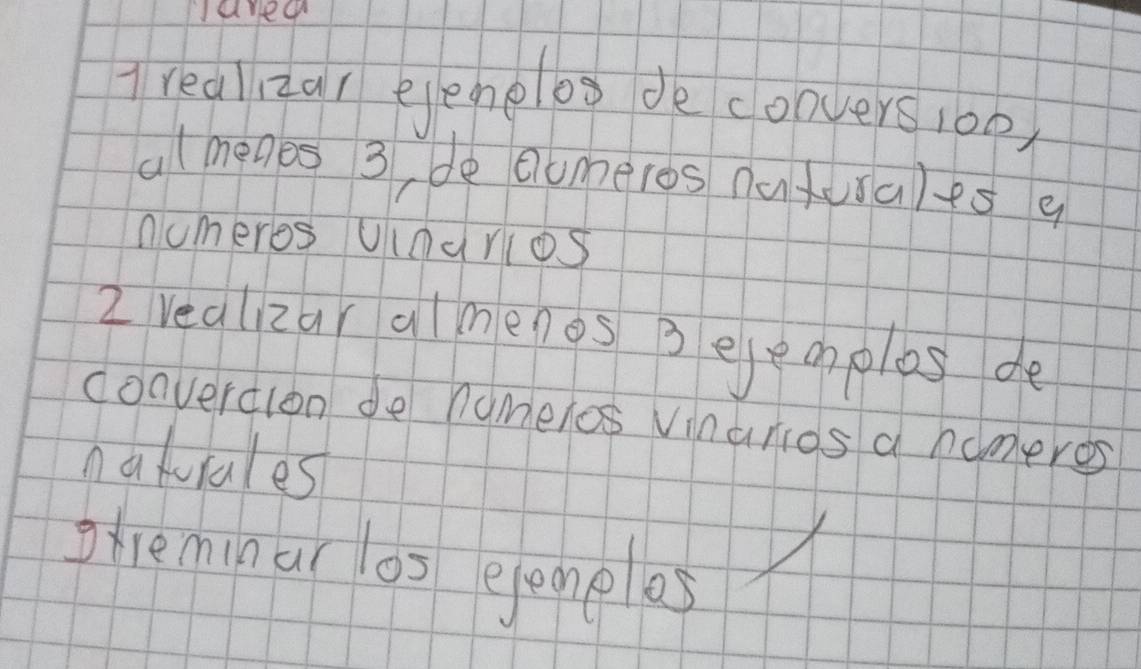 Tarea
1 realizar ejenplos de conversion,
al menos 3, de numeros naturales a
numeros vinarios
2 realizar al menos 3 ejemplos de
convercion de numeros vinarios a numeros
naturales
3 treminar los ejemplos